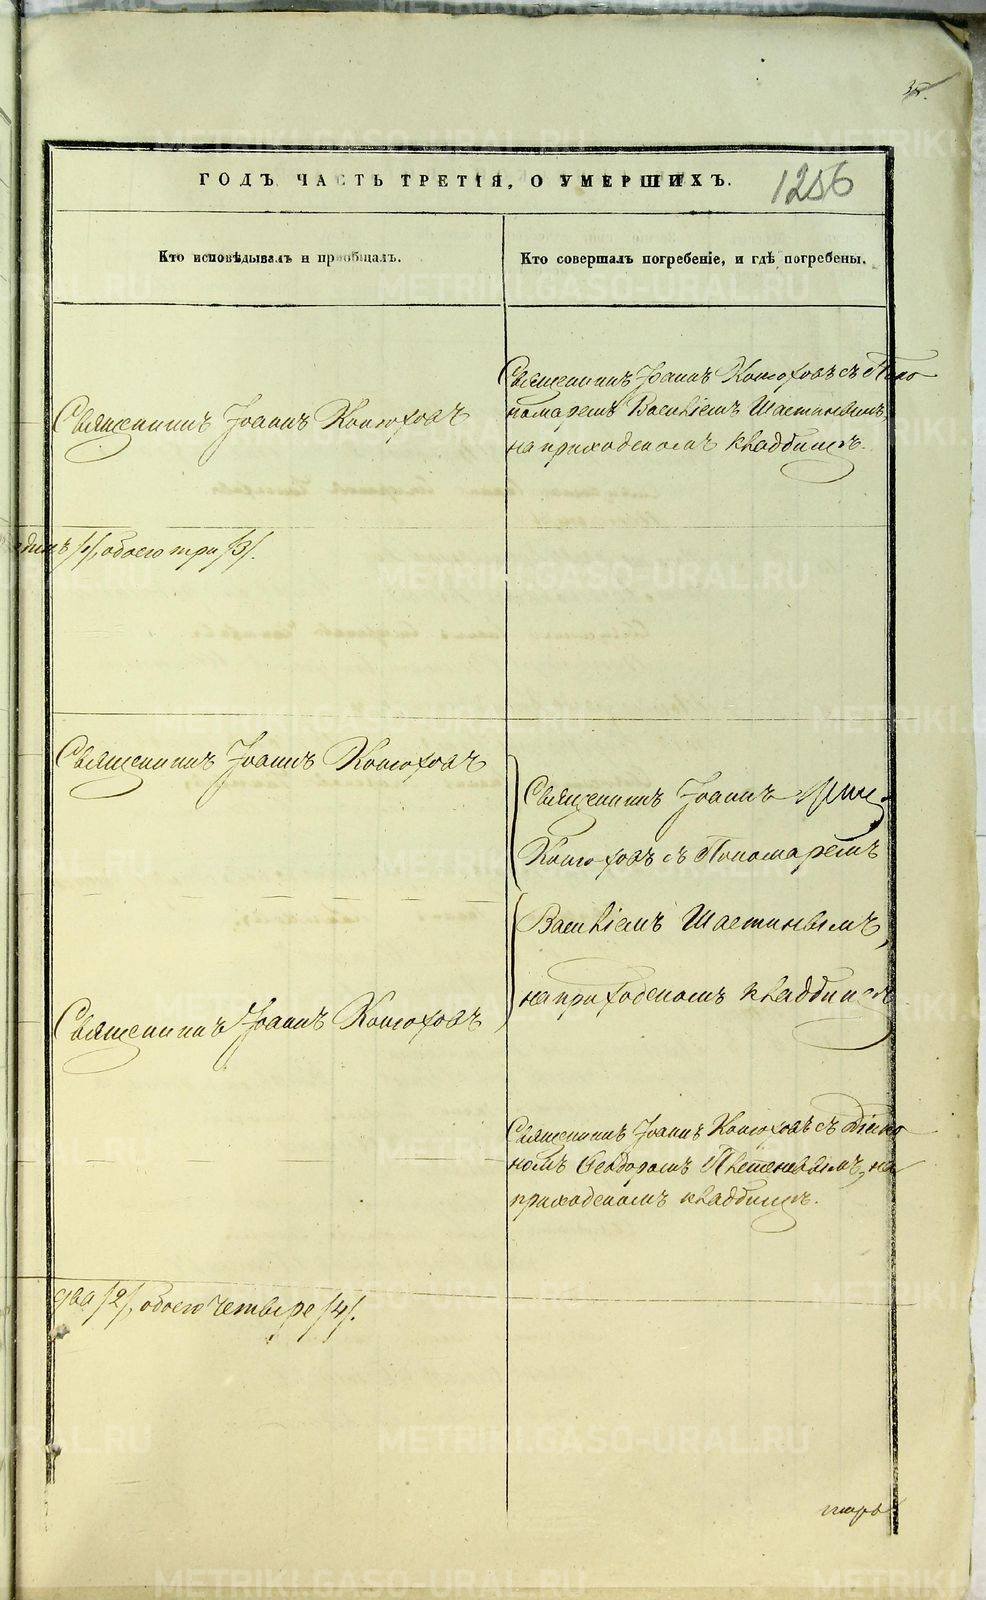 1256
ГОДЪ ЧАСТЬ ТРЕТІЯ, О УМЕРШИХЪ.
Кто исповѣдывалъ и пріобщалъ.
Кто совершалъ погребеніе, и гдѣ погребены.
Священникъ Іоаннъ Конюховъ
Священникъ Іоаннъ Конюховъ съ Поно
маремъ Василіемъ Шастинымъ,
на приходскомъ кладбищѣ.
динъ /1/, обоего три /3/.
Священникъ Іоаннъ Конюховъ
Священникъ Іоаннъ
Конюховъ съ Пономаремъ
Василіемъ Шастинымъ,
на приходскомъ кладбищѣ
Священникъ Іоаннъ Конюховъ
Священникъ Іоаннъ Конюховъ съ Діако
номъ Ѳеодоромъ на
приходскомъ кладбищѣ.
два /2/, обоего четыре /4/.
METRIKI.GASO-URAL.RU